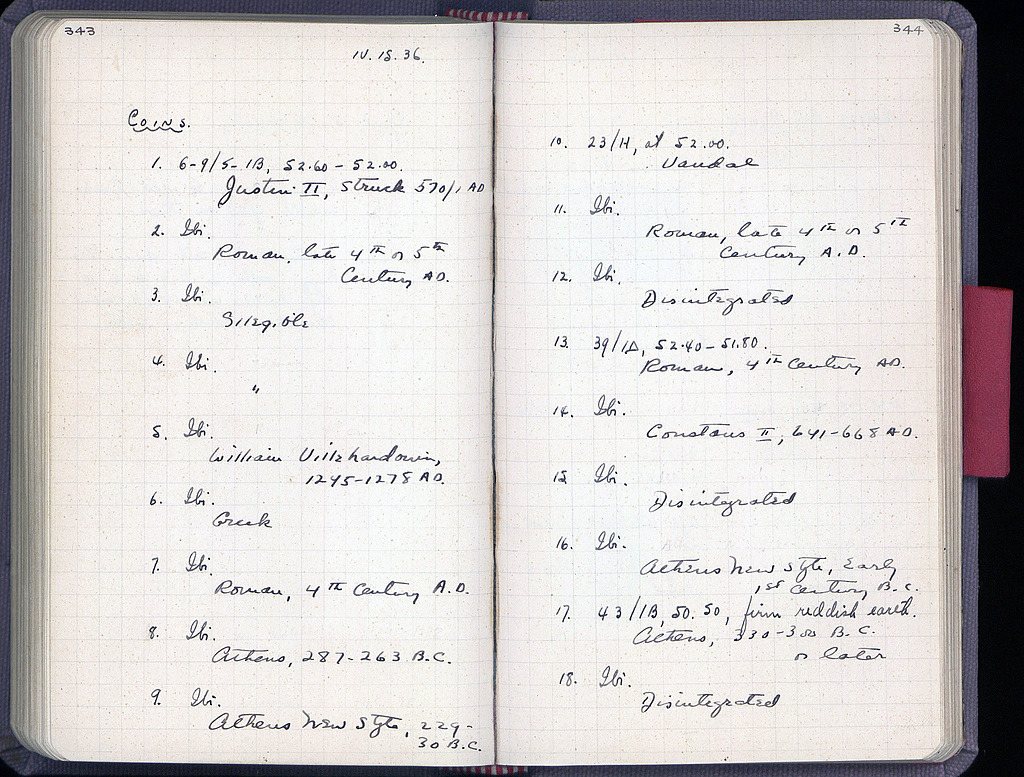 343
IV. 15. 36.
Coins.
1. 6-9/5-1B, 52.60 - 52.00.
Justin II, struck 570/1 AD
2. Ibi.
Roman, late 4th or 5th
Century AD.
3. Ibi.
Illegible
4. Ibi.
"
5. Ibi.
William Villehardouin,
1245-1278 AD.
6. Ibi.
Greek
7. Ibi.
Roman, 4th Century A.D.
8. Ibi.
Athens, 287-263 B.C.
9. Ibi.
Athens New Style, 229-
30 B.C.
344
10. 23/H, at 52.00.
Vandal
11. Ibi.
Roman, late 4th or 5th
Century A.D.
12. Ibi.
Disintegrated
13. 39/1Δ, 52.40 - 51.80.
Roman, 4th Century AD.
14. Ibi.
Constans II, 641-668 AD.
15. Ibi.
Disintegrated
16. Ibi.
Athens New Style, Early
1st Century B.C.
17. 43/1B, 50.50, firm reddish earth.
Athens, 330-300 B.C.
or later
18. Ibi.
Disintegrated